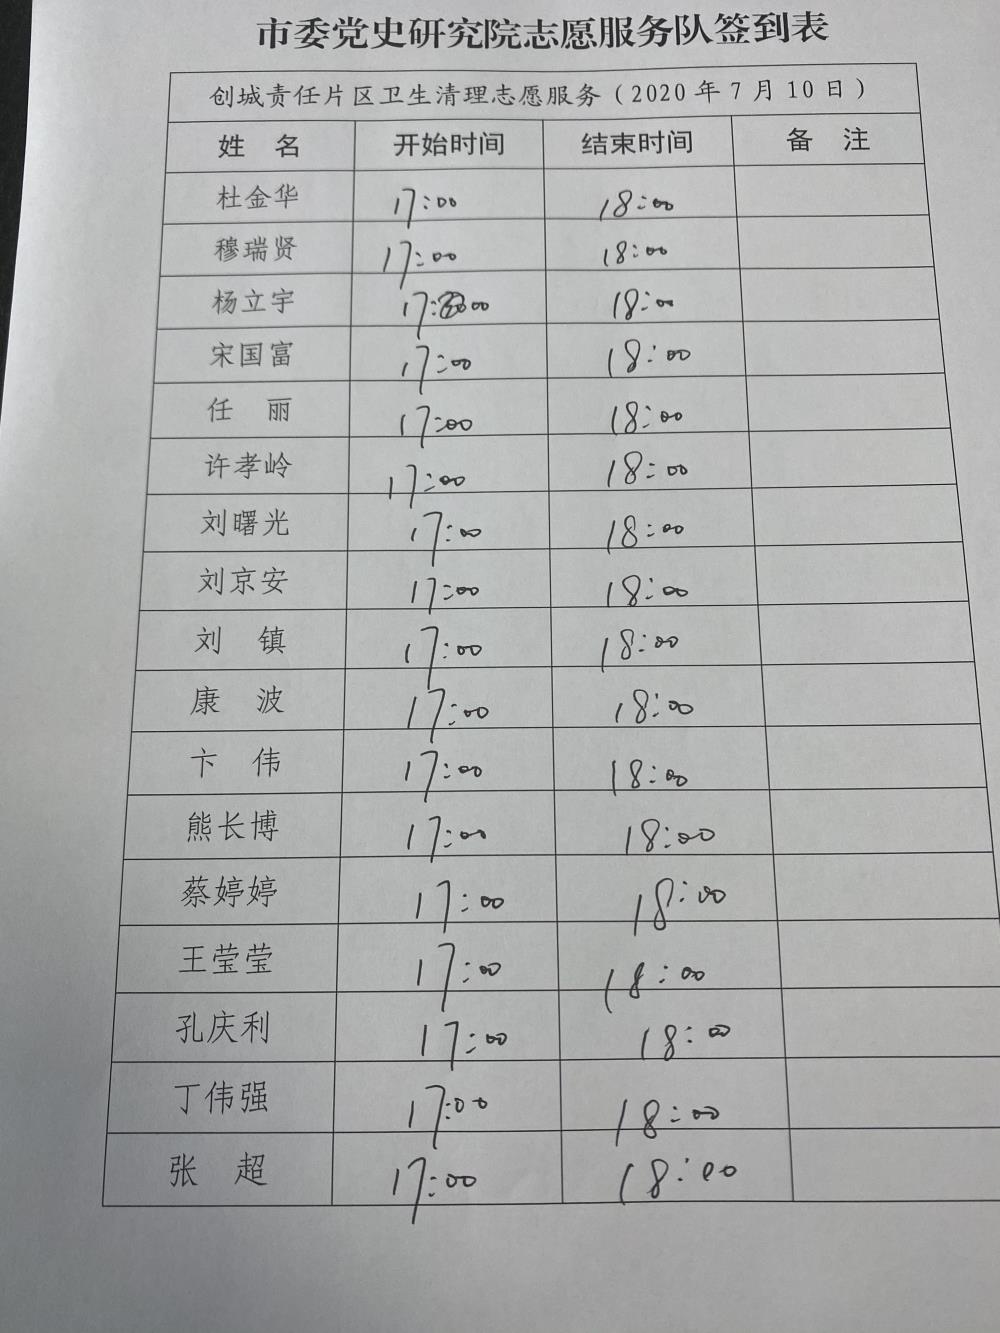 市委党史研究院志愿服务队签到表
创城责任片区卫生清理志愿服务（2020年7月10日）
姓 名 开始时间 结束时间 备 注
杜金华 17:00 18:00
穆瑞贤 17:00 18:00
杨立宇 17:00 18:00
宋国富 17:00 18:00
任 丽 17:00 18:00
许孝岭 17:00 18:00
刘曙光 17:00 18:00
刘京安 17:00 18:00
刘 镇 17:00 18:00
康 波 17:00 18:00
卞 伟 17:00 18:00
熊长博 17:00 18:00
蔡婷婷 17:00 18:00
王莹莹 17:00 18:00
孔庆利 17:00 18:00
丁伟强 17:00 18:00
张 超 17:00 18:00